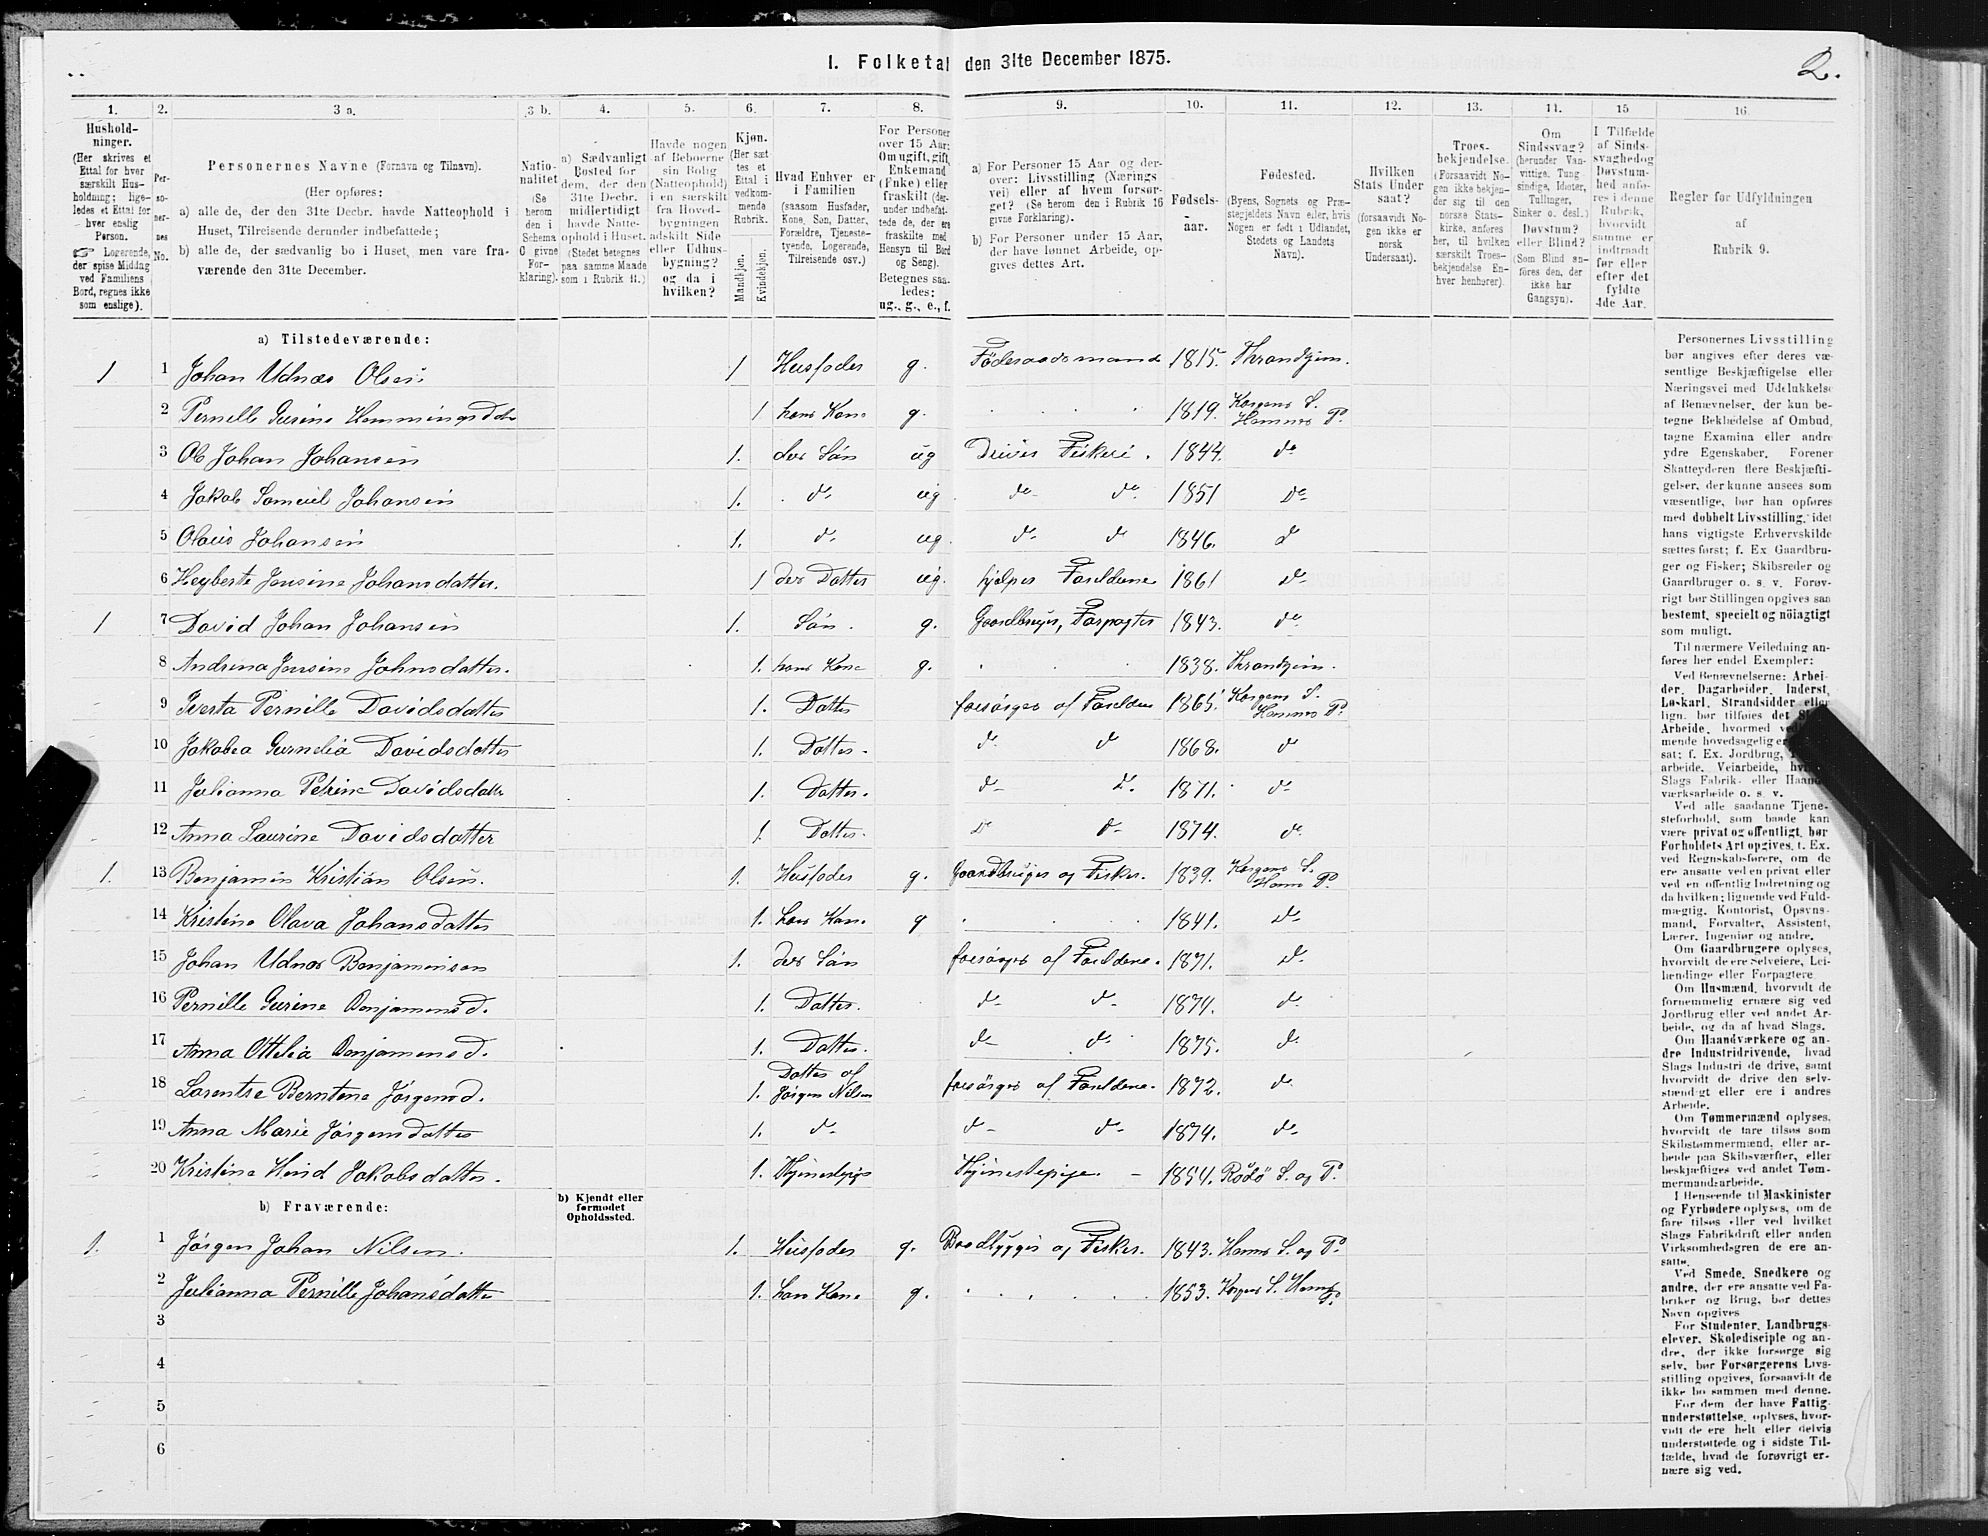 1. Folketal den 31te December 1875.
2.
1. 2. 3 a. 3 b. 4. 5. 6. 7. 8. 9. 10. 11. 12. 13. 14. 15 16.
Hushold-
ninger.
(Her skrives et
Ettal for hver
særskilt Hus-
holdning; lige-
ledes et Ettal for
hver enslig
Person.
Logerende,
der spise Middag
ved Familiens
Bord, regnes ikke
som enslige).
Per-
so-
ner-
nes
No.
Personernes Navne (Fornavn og Tilnavn).
(Her opføres:
a) alle de, der den 31te Decbr. havde Natteophold i
Huset, Tilreisende derunder indbefattede;
b) alle de, der sædvanlig bo i Huset, men vare fra-
værende den 31te December.
Natio-
nalitet
(Se
herom
den i
Schema
6 givne
For-
klaring).
a) Sædvanligt
Bosted for
dem, der den
31te Decbr.
midlertidigt
havde Natte-
ophold i Huset.
(Stedet betegnes
paa samme Maade
som i Rubrik 11.)
Havde nogen
af Beboerne
sin Bolig
(Natteophold)
i en særskilt
fra Hoved-
bygningen
adskilt Side
eller Udhus-
bygning?
og da i
hvilken?
Kjøn.
(Her sæt-
tes et
Ettal i
vedkom-
mende
Rubrik.
Mandkjøn.
Kvindekjøn.
Hvad Enhver er
i Familien
(saasom Husfader,
Kone, Søn, Datter,
Forældre, Tjeneste-
tyende, Logerende,
Tilreisende osv.)
For Personer
over 15 Aar:
Om ugift, gift,
Enkemand
(Enke) eller
fraskilt (der-
under indbefat-
tede de, der ere
fraskilte med
Hensyn til Bord
og Seng).
Betegnes saa-
ledes:
ug., g., e., f.
a) For Personer 15 Aar og der-
over: Livsstilling (Nærings
vei) eller af hvem forsør-
get? (Se herom den i Rubrik 16
givne Forklaring).
b) For Personer under 15 Aar,
der have lønnet Arbeide, op-
gives dettes Art.
Fødsels-
aar.
Fødested.
(Byens, Sognets og Præ-
stegjeldets Navn eller, hvis
Nogen er født i Udlandet,
Stedets og Landets
Navn).
Hvilken
Stats Under
saat?
(forsaavidt No-
gen ikke er
norsk
Undersaat).
Troes-
bekjendelse.
(Forsaavidt No-
gen ikke bekjen-
der sig til den
norske Stats-
kirke, anføres
her, til hvilken
særskilt Troes-
bekjendelse En-
hver henhører).
Om
Sindssvag?
(herunder Van-
vittige, Tung
sindige, Idioter,
Tullinger,
Sinker o. desl.)
Døvstum?
eller Blind?
(Som Blind an-
føres den, der
ikke har
Gangsyn).
I Tilfælde
af Sinds-
svaghed og
Døvstum-
hed anfø-
res i denne
Rubrik,
hvorvidt
samme er
indtraadt
før eller
efter det
fyldte
4de Aar.
Regler for Udfyldningen
af
Rubrik 9.
a) Tilstedeværende:
1 1 Johan Udnæs Olsen 1 Husfader g. Føderaadsmand 1815. Throndhjem.
2 Pernille Gurine Hemmingsdatter 1 hans Kone g. 1819. Korgens S. Hemnæs P.
3 Ole Johan Johansen 1. der Søn ug Driver Fiskeri. 1844. do
4 Jakob Samuel Johansen 1. do ug do do 1851 do
5 Olaus Johansen 1. do ug. do do 1846. do
6 Heyberte Jensine Johansdatter. 1 der Datter ug. hjelper Forældrene 1861 do
1 7 David Johan Johansen 1. Søn. g. Gaardbruger, Forpagter 1843. do
8 Andrina Jensine Johnsdatter. 1. hans Kone g. 1838. Throndhjem.
9 Iverta Pernille Davidsdatter 1. Datter forsørges af Forældrene 1865. Korgens S. Hemnes P.
10 Jakobea Gurnelia Davidsdatter 1. Datter. do do 1868. do
11 Julianna Petrine Davidsdatter 1. Datter. do do 1871. do
12 Anna Laurine Davidsdatter 1. Datter. do do 1874. do
1. 13 Benjamin Kristian Olsen. 1. Husfader g. Gaardbruger og Fisker. 1839. Korgens S. Hemnes P.
14 Kristine Olava Johansdatter 1. hans Kone g 1841. do
15 Johan Udnæs Benjaminsen 1. der Søn forsørges af Forældrene. 1871. do
16 Pernille Gurine Benjaminsd. 1. Datter. do do 1874. do
17 Anna Ottelia Benjaminsd. 1. Datter. do do 1875. do
18 Lorentse Berntine Jørgensd. 1. Datter af Jørgen Nilsen forsørges af Forældrene. 1872. do
19 Anna Marie Jørgensdatter 1. do do do 1874. do
20 Kristine Jakobsdatter. 1. Thjenestepige Thjenestepige. 1854. Rødø S. og P.
b) Fraværende:
b) Kjendt eller
formodet
Opholdssted.
1. 1 Jørgen Johan Nilsen. 1. Husfader g. Baadbygger og Fisker. 1843. Hemnes S. og P.
2 Julianna Pernille Johansdatter 1. hans Kone g. 1853. Korgens S. Hemnes P.
3
4
5
6
Personernes Livsstilling
bør angives efter deres væ-
sentlige Beskjæftigelse eller
Næringsvei med Udelukkelse
af Benævnelser, der kun be-
tegne Beklædelse af Ombud,
tagne Examina eller andre
ydre Egenskaber. Forener
Skatteyderen flere Beskjæfti-
gelser, der kunne ansees som
væsentlige, bør han opføres
med dobbelt Livsstilling, idet
hans vigtigste Erhvervskilde
sættes først; f. Ex Gaardbru-
ger og Fisker; Skibsreder og
Gaardbruger o. s. v. Forøv-
rigt bør Stillingen opgives saa
bestemt, specielt og nøiagtigt
som muligt.
Til nærmere Veiledning an-
føres her endel Exempler:
Ved Benævnelserne: Arbei-
der, Dagarbeider, Inderst,
Løskarl, Strandsidder eller
lign. bør tilføies det
Arbeide, hvormed
mende hovedsagelig er
sat; f. Ex. Jordbrug,
arbeide, Veiarbeide,
Slags Fabrik- eller
værksarbeide o. s. v.
Ved alle saadanne Tjene-
steforhold, som baade kan
være privat og offentligt, bør
Forholdets Art opgives, t. Ex.
ved Regnskabsførere, om de
ere ansatte ved en privat eller
ved en offentlig Indretning og
da hvilken; lignende ved Fuld-
mægtig, Kontorist, Opsyns-
mand, Forvalter, Assistent,
Lærer, Ingeniør og andre.
Om Gaardbrugere oplyses,
hvorvidt de ere Selveiere, Lei-
lændinge eller Forpagtere
Om Husmænd, hvorvidt de
fornemmelig ernære sig ved
Jordbrug eller ved andet Ar-
beide, og da af hvad Slags.
Om Haandværkere og an-
dre Industridrivende, hvad
Slags Industri de drive, samt
hvorvidt de drive den selv-
stændigt eller ere i andres
Arbeide.
Om Tømmermænd oplyses,
hvorvidt de fare tilsøs som
Skibstømmermænd, eller ar-
beide paa Skibsværfter, eller
beskjæftiges ved andet Tøm-
mermandsarbeide.
I Henseende til Maskinister
og Fyrbødere oplyses, om de
fare tilsøs eller ved hvilket
Slags Fabrikdrift eller anden
Virksomhedsgren de ere an-
satte.
Ved Smede, Snedkere og
andre, der ere ansatte ved Fa-
briker og Brug, bør dettes
Navn opgives
For Studenter, Landbrugs-
elever, Skoledisciple og an-
dre, der ikke forsørge sig
selv, bør Forsørgerens Livs-
stilling opgives, forsaavidt de
ikke bo sammen med denne.
For dem der have Fattig-
understøttelse, oplyses, hvor-
vidt de ere helt eller delvis
understøttede og i sidste Til-
fælde, hvad de forøvrigt er-
nære sig ved.